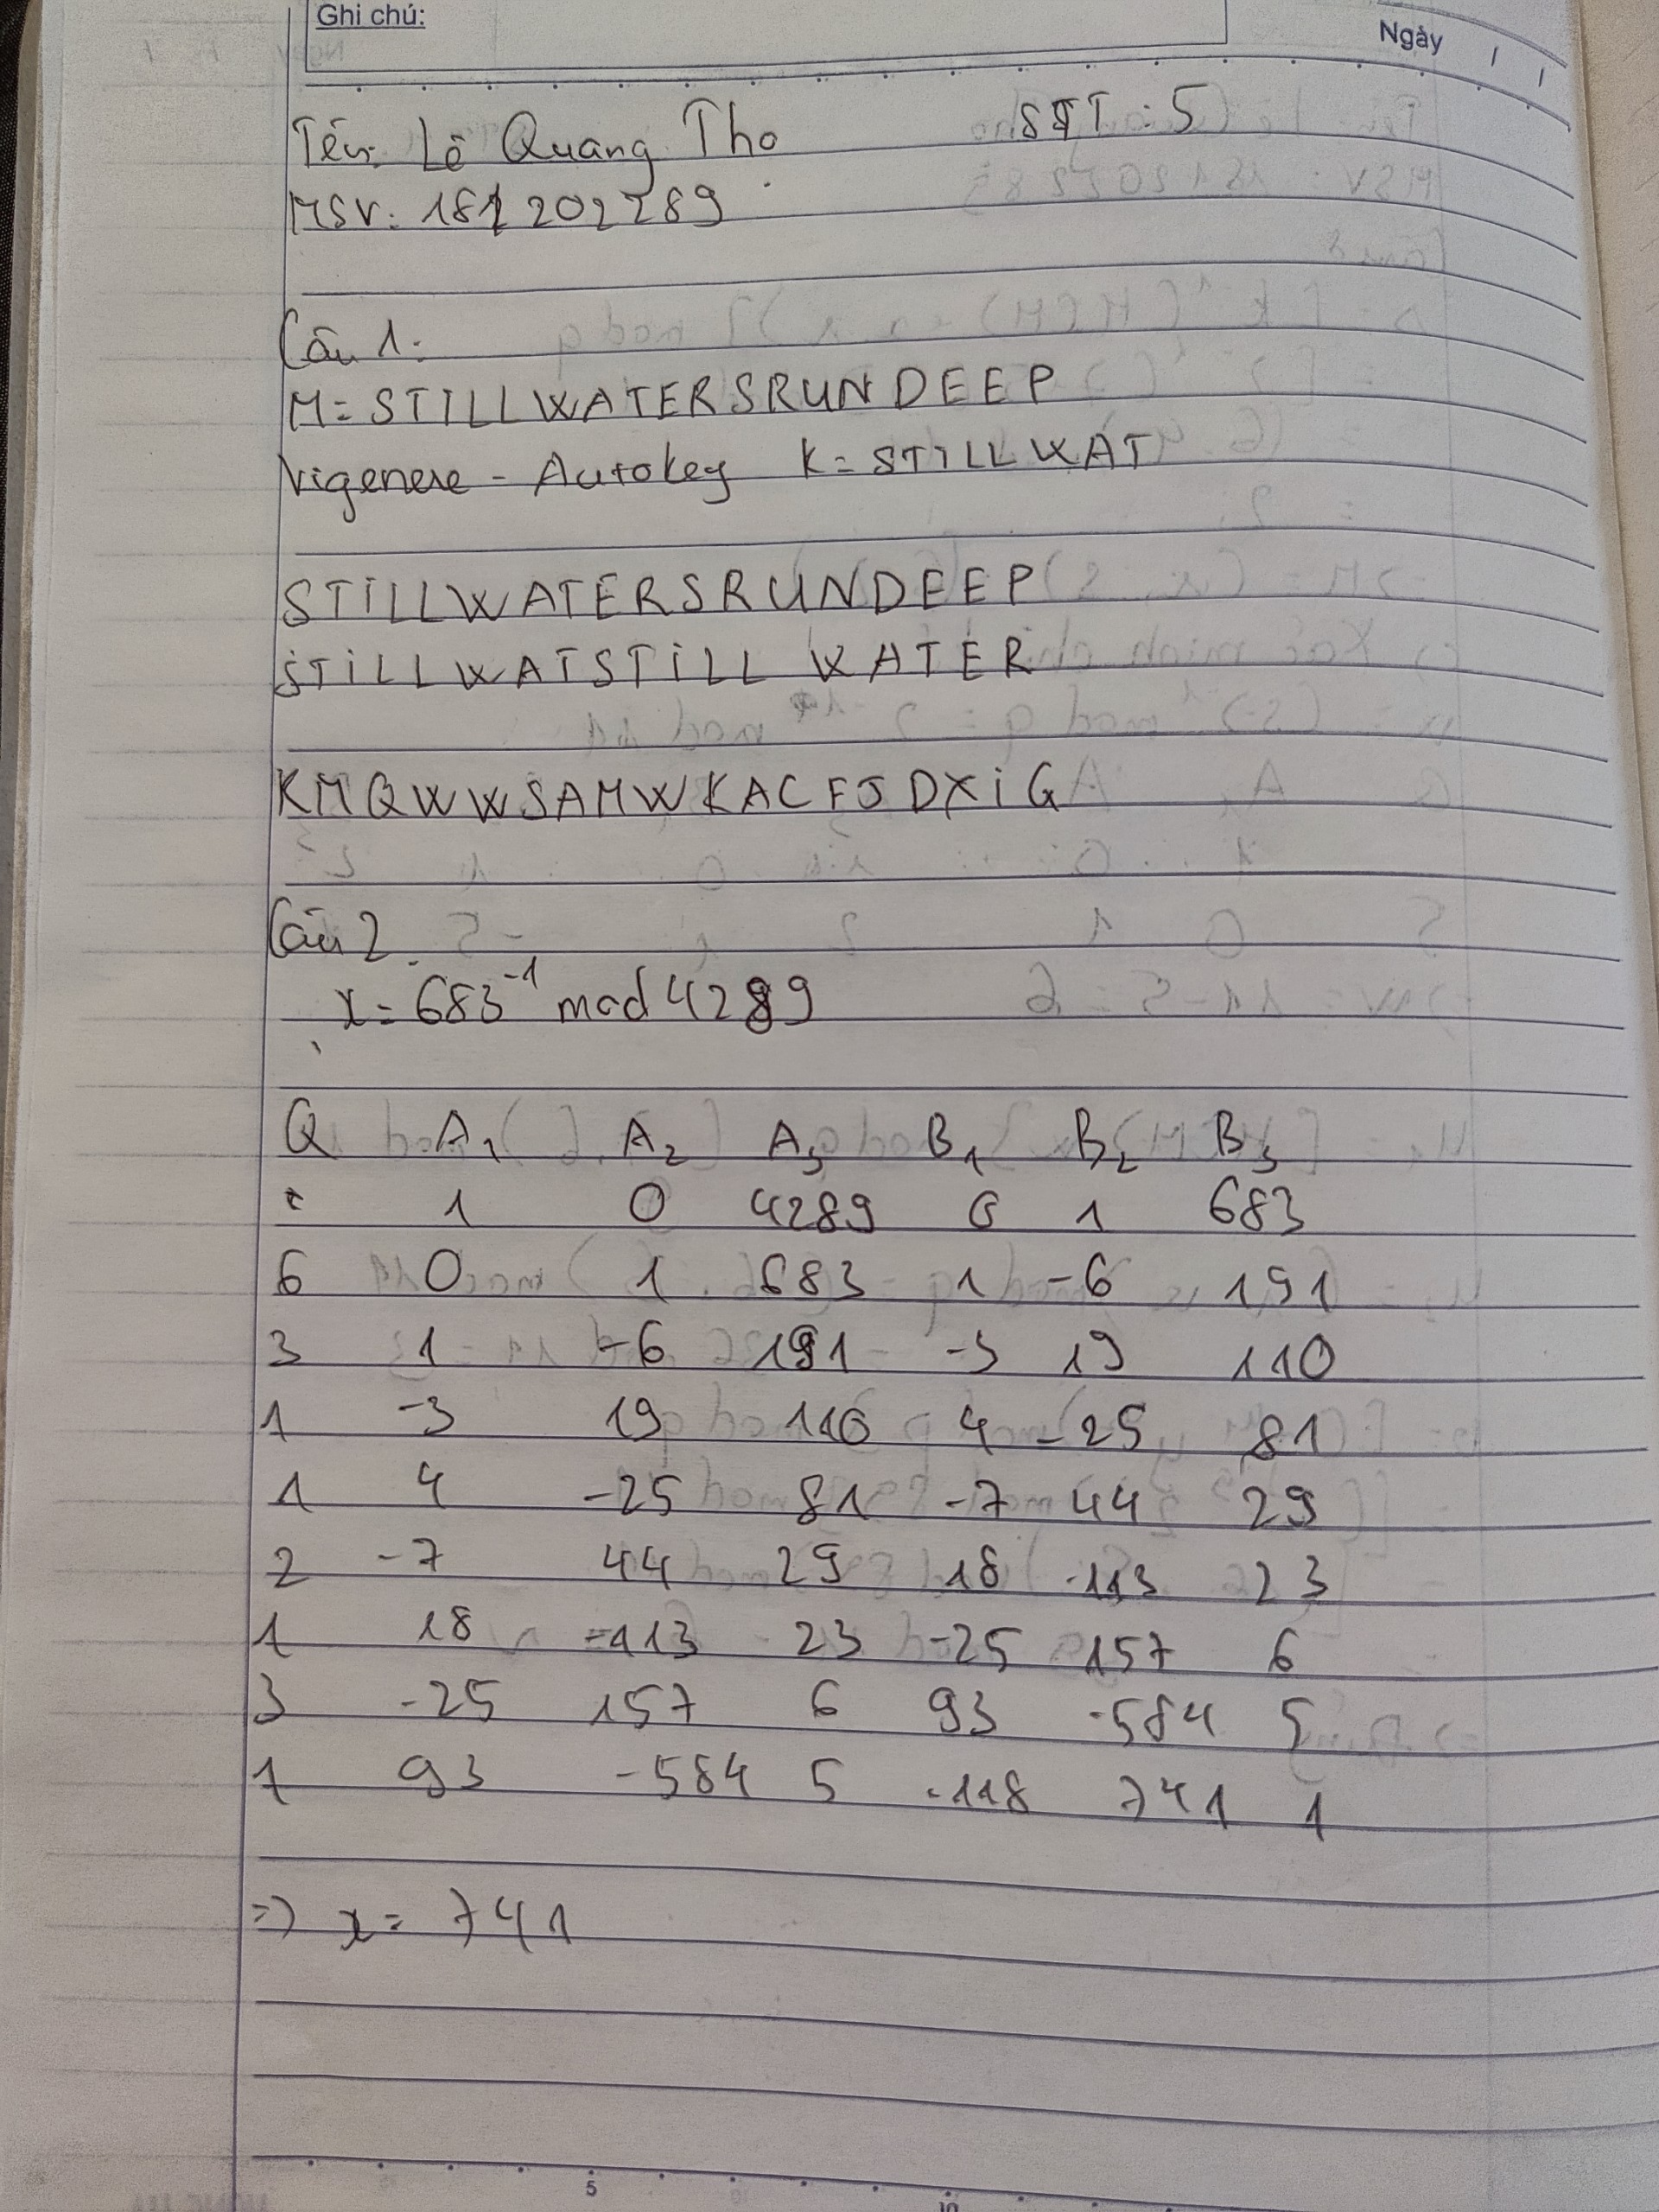 Ghi chú:
Ngày / /
Tên: Lê Quang Thọ STT: 5
MSV: 181202289
Câu 1:
M = STILLWATERSRUNDEEP
Vigenere - Autokey K = STILLWAT
STILLWATERSRUNDEEP
STILLWATSTILLWATER
KMQWWSAMWKACFJDXIG
Câu 2.
x = 683⁻¹ mod 4289
Q A₁ A₂ A₃ B₁ B₂ B₃
1 0 4289 0 1 683
6 0 1 683 1 -6 191
3 1 -6 191 -3 19 110
1 -3 19 110 4 -25 81
1 4 -25 81 -7 44 29
2 -7 44 29 18 -113 23
1 18 -113 23 -25 157 6
3 -25 157 6 93 -584 5
1 93 -584 5 -118 741 1
=> x = 741
5 10